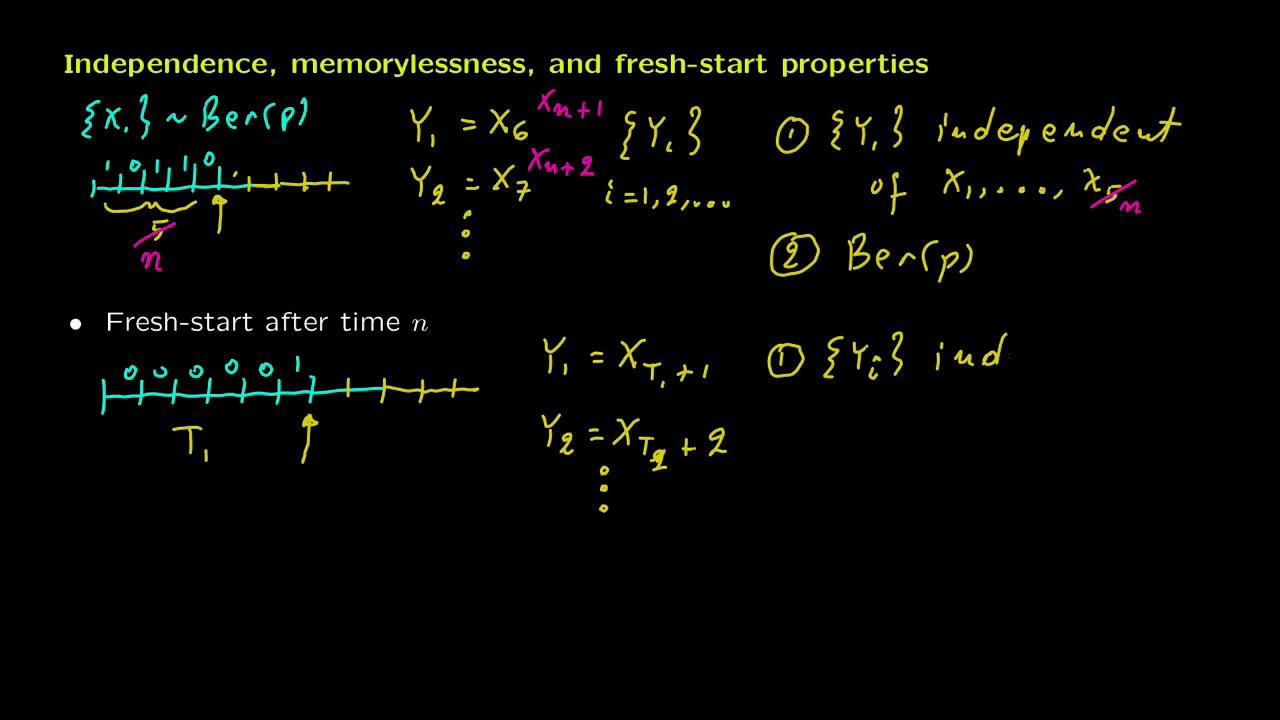 Independence, memorylessness, and fresh-start properties
{X_i} ~ Ber(p)
1 0 1 1 0
5 n
Y_1 = X_6 X_{n+1}
Y_2 = X_7 X_{n+2}
{Y_i}
i=1,2,...
① {Y_i} independent
of X_1, ..., X_5 n
② Ber(p)
• Fresh-start after time n
0 0 0 0 0 1
T_1
Y_1 = X_{T_1+1}
Y_2 = X_{T_2+2}
① {Y_i} ind